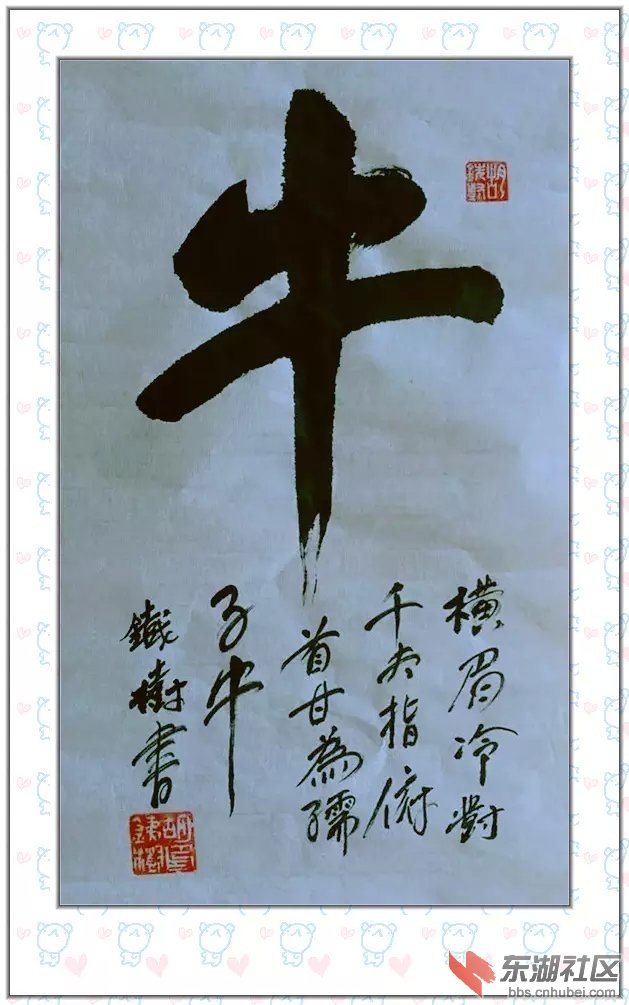 牛
橫眉冷對
千夫指俯
首甘為孺
子牛
鐵樹書
胡印鐵樹
东湖社区
bbs.cnhubei.com